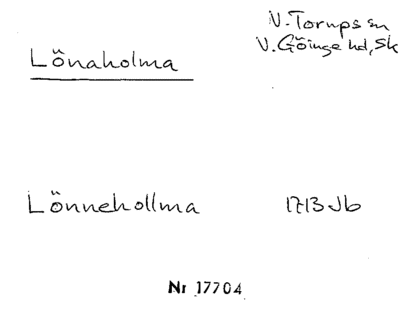 V. Torups sn
Lönaholma
V. Göinge hd, Sk
Lönnehollma 1713 Jb
Nr 17704